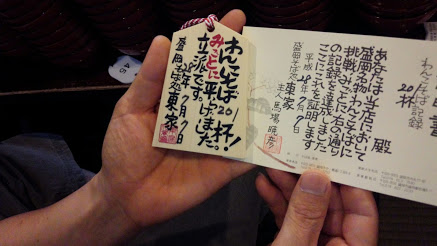 わんこそば201杯!!
みごとに平らげました。
立派です。
28年7月7日
盛岡そば処 東家
わんこそば記録
201杯
殿
あなたは当店において
盛岡名物わんこそばに
挑戦みごとに右の通り
の記録を達成しました
ここにこれを証明します
平成28年7月7日
盛岡そば処 東家
主人 馬場暁彦